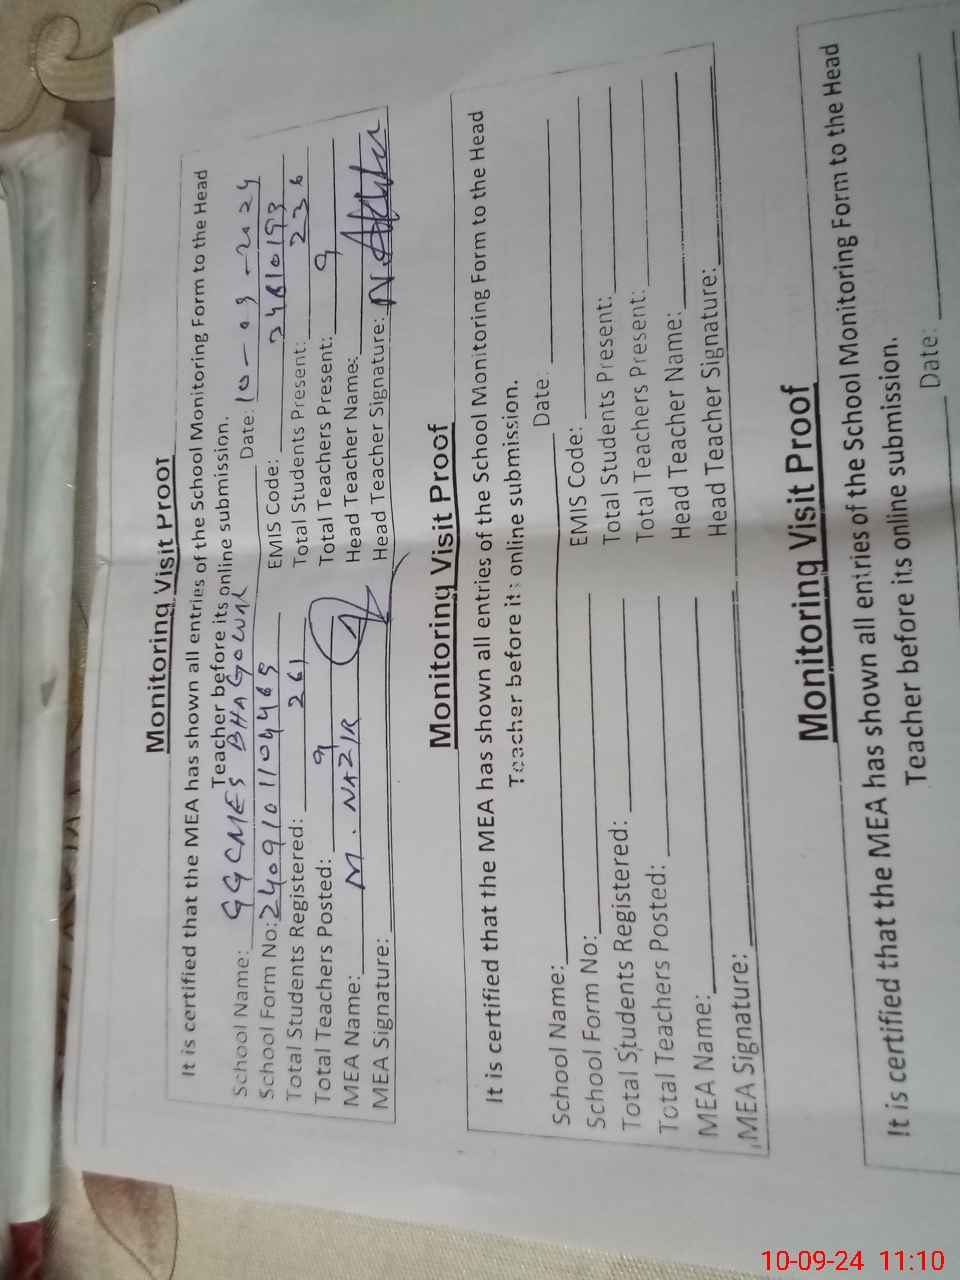 Monitoring Visit Proof
It is certified that the MEA has shown all entries of the School Monitoring Form to the Head
Teacher before its online submission.
School Name: GGCMES BHAGOWAL Date: 10-09-2024
School Form No: 2409101104469 EMIS Code: 24810193
Total Students Registered: 261 Total Students Present: 236
Total Teachers Posted: 9 Total Teachers Present: 9
MEA Name: M. NAZIR Head Teacher Name:
MEA Signature: Head Teacher Signature:
Monitoring Visit Proof
It is certified that the MEA has shown all entries of the School Monitoring Form to the Head
Teacher before its online submission.
School Name: Date:
School Form No: EMIS Code:
Total Students Registered: Total Students Present:
Total Teachers Posted: Total Teachers Present:
MEA Name: Head Teacher Name:
MEA Signature: Head Teacher Signature:
Monitoring Visit Proof
It is certified that the MEA has shown all entries of the School Monitoring Form to the Head
Teacher before its online submission.
Date:
10-09-24 11:10